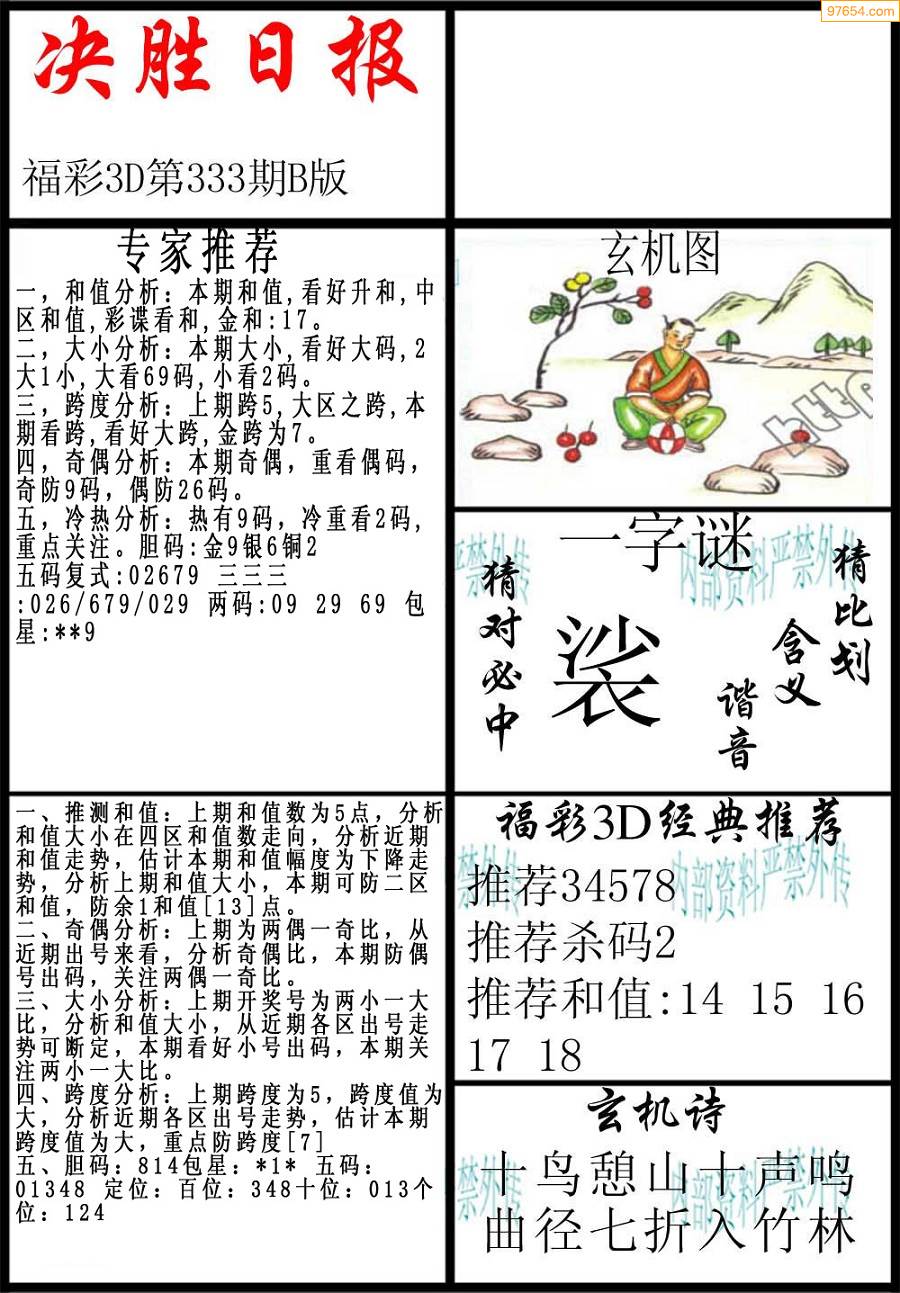 97654.com
决胜日报
福彩3D第333期B版
专家推荐
一，和值分析：本期和值,看好升和,中
区和值,彩谍看和,金和:17。
二，大小分析：本期大小,看好大码,2
大1小,大看69码,小看2码。
三，跨度分析：上期跨5,大区之跨,本
期看跨,看好大跨,金跨为7。
四，奇偶分析：本期奇偶，重看偶码，
奇防9码，偶防26码。
五，冷热分析：热有9码，冷重看2码,
重点关注。胆码:金9银6铜2
五码复式:02679 三三三
:026/679/029 两码:09 29 69 包
星:**9
玄机图
http
一字谜
猜对必中
裟
谐音
含义
猜比划
内部资料严禁外传
严禁外传
一、推测和值：上期和值数为5点，分析
和值大小在四区和值数走向，分析近期
和值走势，估计本期和值幅度为下降走
势，分析上期和值大小，本期可防二区
和值，防余1和值[13]点。
二、奇偶分析：上期为两偶一奇比，从
近期出号来看，分析奇偶比，本期防偶
号出码，关注两偶一奇比。
三、大小分析：上期开奖号为两小一大
比，分析和值大小，从近期各区出号走
势可断定，本期看好小号出码，本期关
注两小一大比。
四、跨度分析：上期跨度为5，跨度值为
大，分析近期各区出号走势，估计本期
跨度值为大，重点防跨度[7]
五、胆码：814包星：*1* 五码：
01348 定位：百位：348十位：013个
位：124
福彩3D经典推荐
推荐34578
推荐杀码2
推荐和值:14 15 16
17 18
内部资料严禁外传
禁外传
玄机诗
十鸟憩山十声鸣
曲径七折入竹林
内部资料严禁外传
禁外传